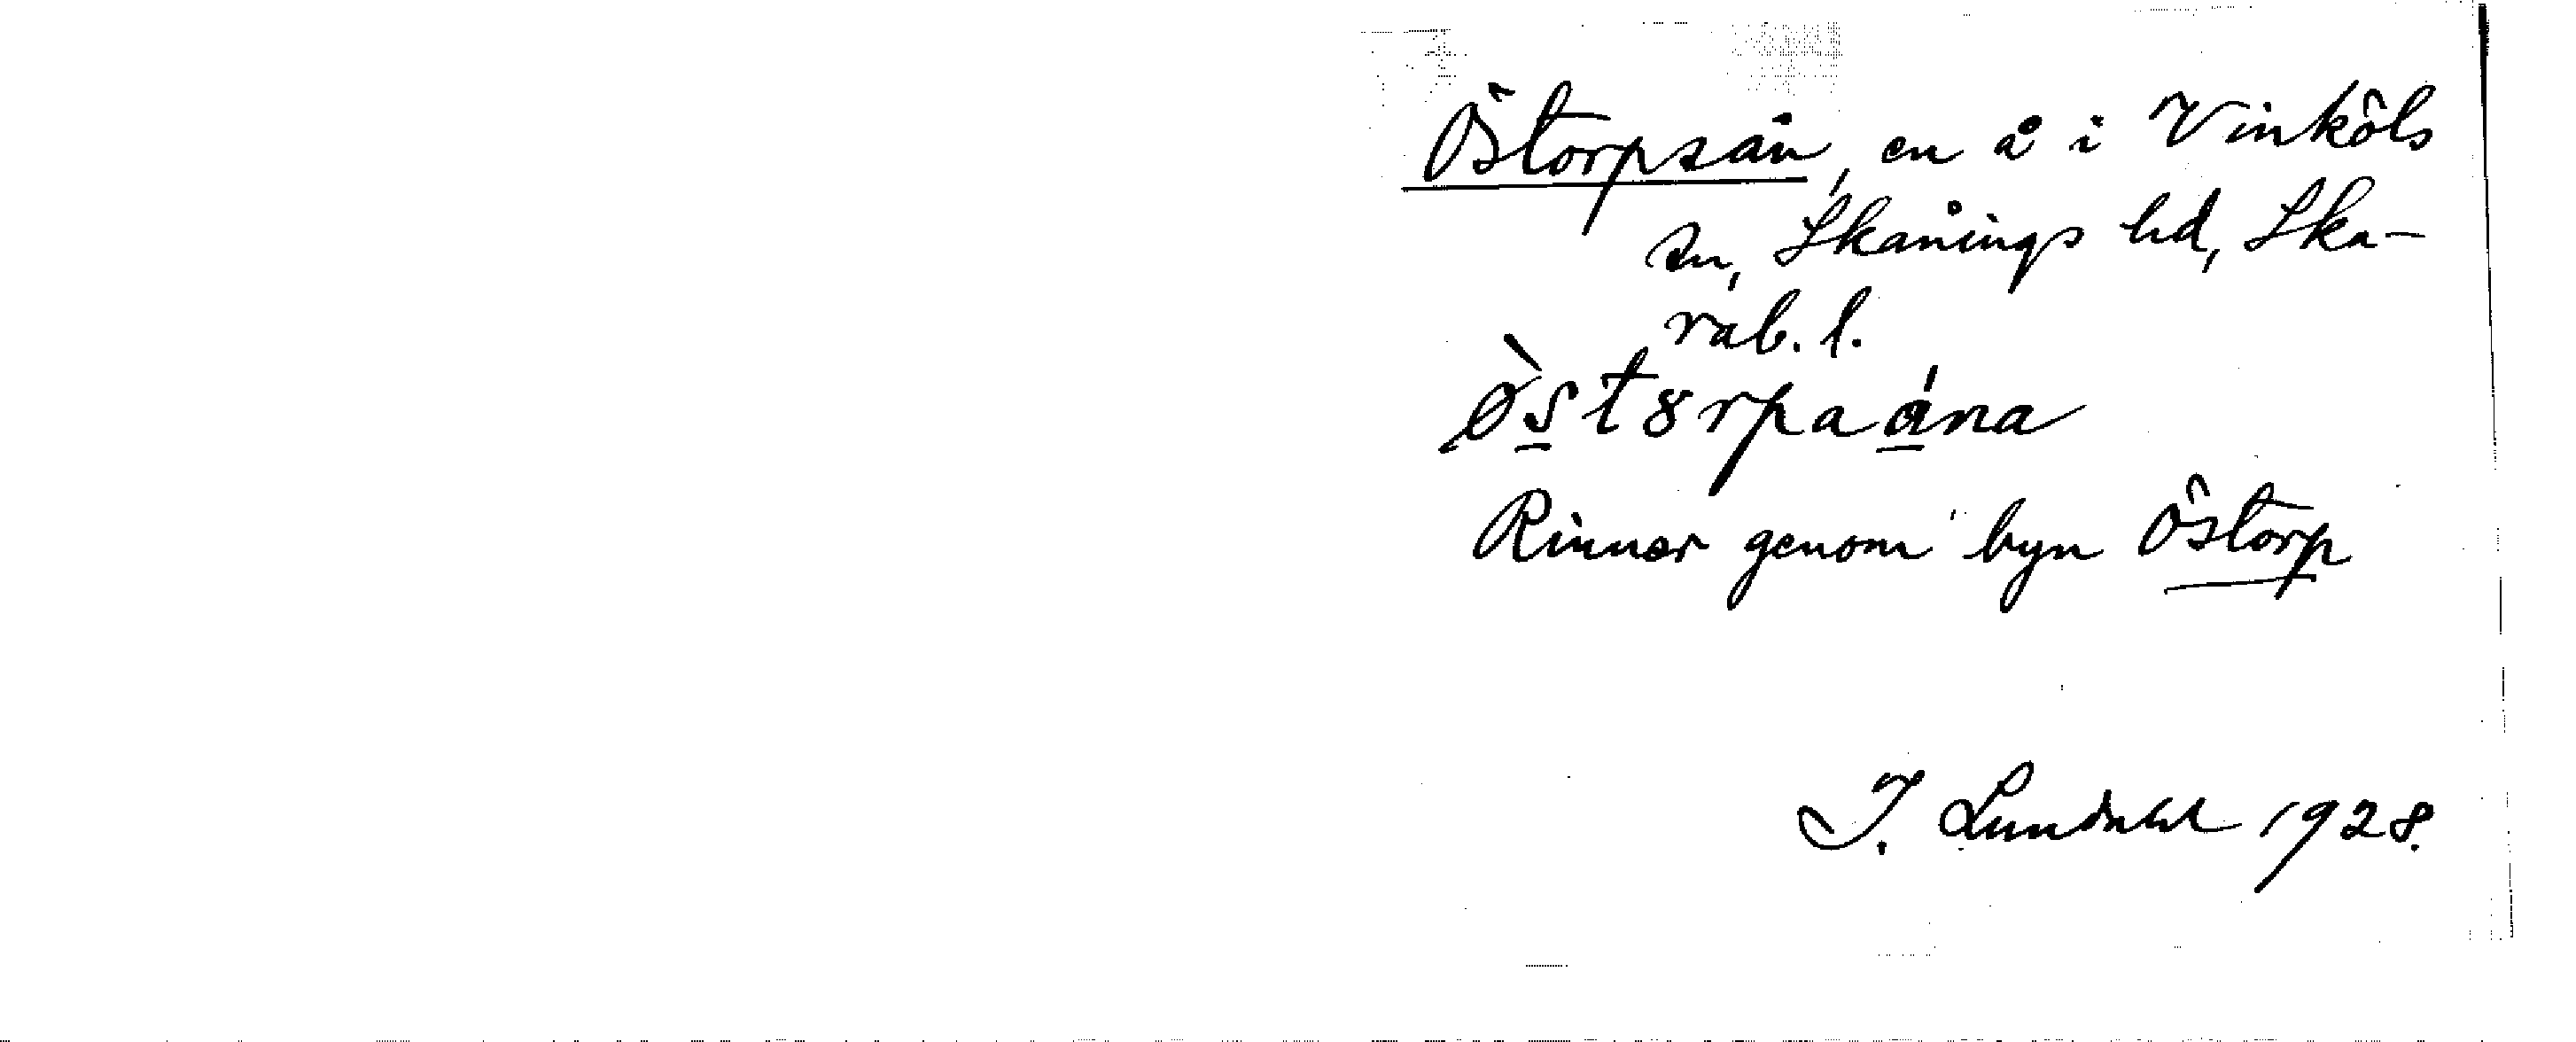 Östorpsån, en å i Vinköls
sn, Skånings hd, Ska-
rab. l.
ø̀st8rpaána
Rinner genom byn Östorp
I. Lundahl 1928.